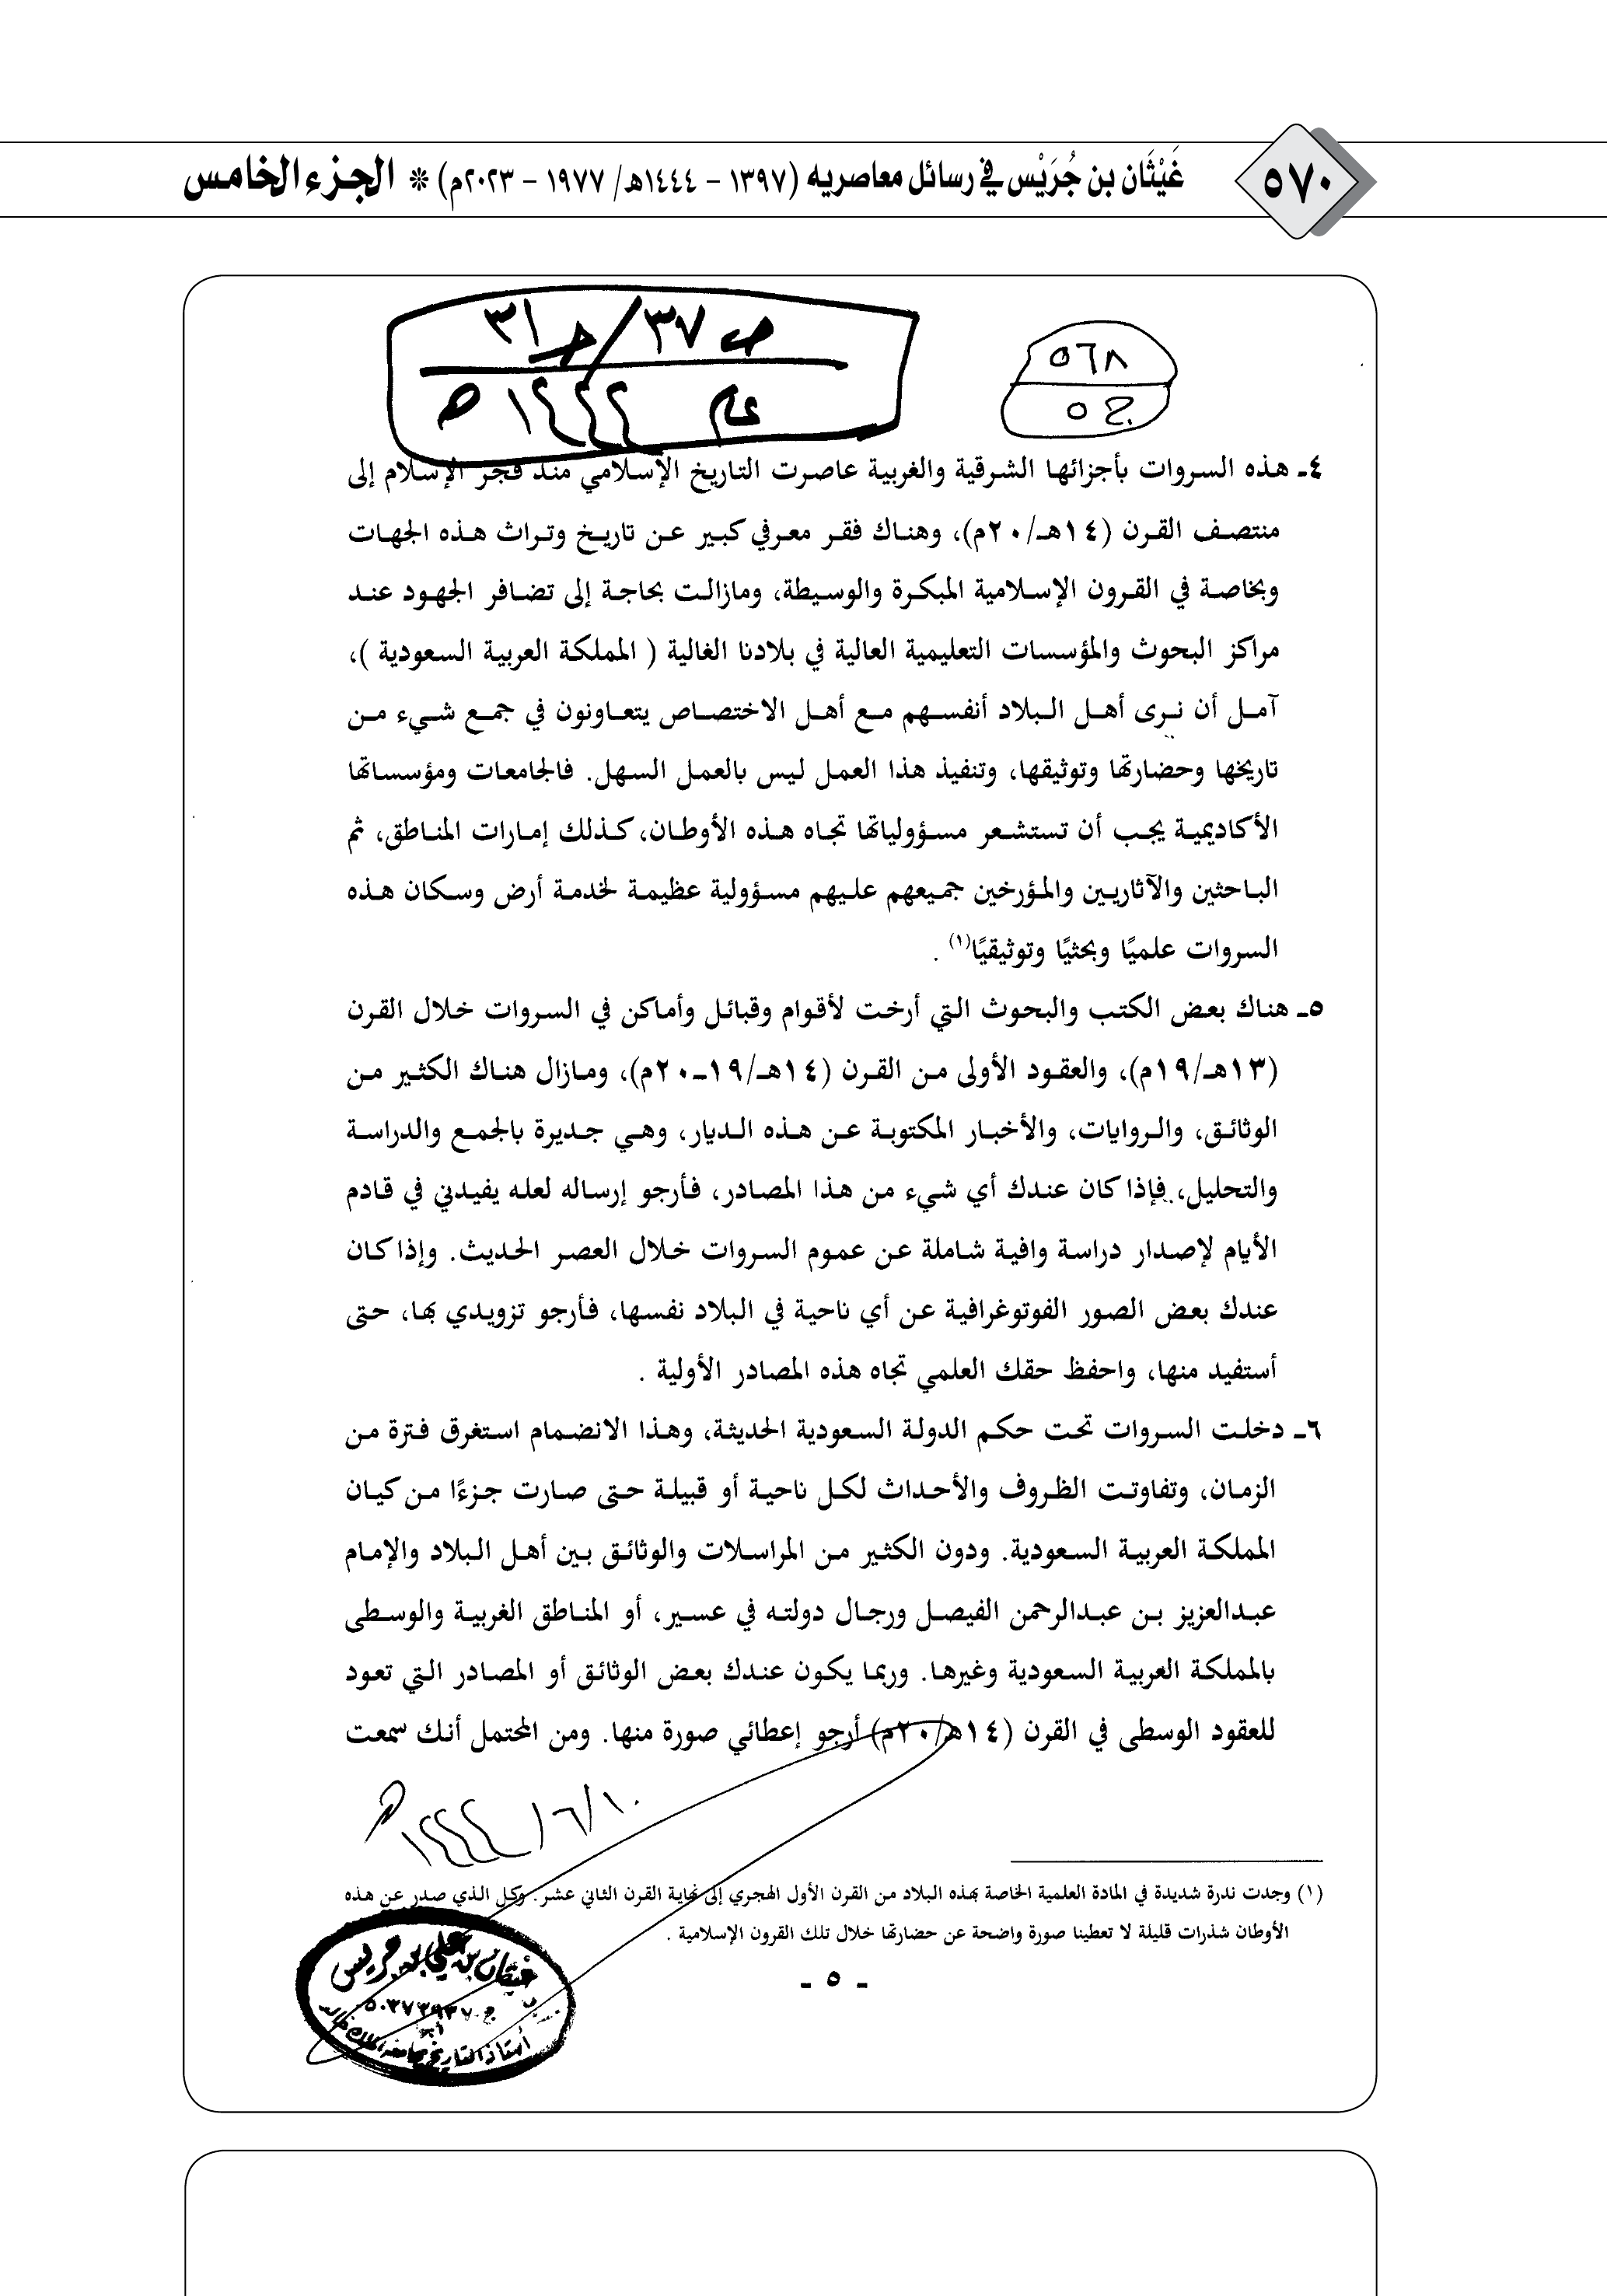 ٥٧٠
غَيْثَان بن جُرَيْس في رسائل معاصريه (١٣٩٧ - ١٤٤٤هـ/ ١٩٧٧ - ٢٠٢٣م) * الجزء الخامس
٥٦٨
ج ٥
ص ٣٧ / ج ٣١
عام ١٤٤٤هـ
٤ـ هذه السروات بأجزائها الشرقية والغربية عاصرت التاريخ الإسلامي منذ فجر الإسلام إلى
منتصف القرن (١٤هـ/٢٠م)، وهناك فقر معرفي كبير عن تاريخ وتراث هذه الجهات
وبخاصة في القرون الإسلامية المبكرة والوسيطة، ومازالت بحاجة إلى تضافر الجهود عند
مراكز البحوث والمؤسسات التعليمية العالية في بلادنا الغالية ( المملكة العربية السعودية )،
آمل أن نرى أهل البلاد أنفسهم مع أهل الاختصاص يتعاونون في جمع شيء من
تاريخها وحضارتها وتوثيقها، وتنفيذ هذا العمل ليس بالعمل السهل. فالجامعات ومؤسساتها
الأكاديمية يجب أن تستشعر مسؤولياتها تجاه هذه الأوطان، كذلك إمارات المناطق، ثم
الباحثين والآثاريين والمؤرخين جميعهم عليهم مسؤولية عظيمة لخدمة أرض وسكان هذه
السروات علميًا وبحثيًا وتوثيقيًا(١) .
٥ـ هناك بعض الكتب والبحوث التي أرخت لأقوام وقبائل وأماكن في السروات خلال القرن
(١٣هـ/١٩م)، والعقود الأولى من القرن (١٤هـ/١٩ـ٢٠م)، ومازال هناك الكثير من
الوثائق، والروايات، والأخبار المكتوبة عن هذه الديار، وهي جديرة بالجمع والدراسة
والتحليل، فإذا كان عندك أي شيء من هذا المصادر، فأرجو إرساله لعله يفيدني في قادم
الأيام لإصدار دراسة وافية شاملة عن عموم السروات خلال العصر الحديث. وإذا كان
عندك بعض الصور الفوتوغرافية عن أي ناحية في البلاد نفسها، فأرجو تزويدي بها، حتى
أستفيد منها، واحفظ حقك العلمي تجاه هذه المصادر الأولية .
٦ـ دخلت السروات تحت حكم الدولة السعودية الحديثة، وهذا الانضمام استغرق فترة من
الزمان، وتفاوتت الظروف والأحداث لكل ناحية أو قبيلة حتى صارت جزءًا من كيان
المملكة العربية السعودية. ودون الكثير من المراسلات والوثائق بين أهل البلاد والإمام
عبدالعزيز بن عبدالرحمن الفيصل ورجال دولته في عسير، أو المناطق الغربية والوسطى
بالمملكة العربية السعودية وغيرها. وربما يكون عندك بعض الوثائق أو المصادر التي تعود
للعقود الوسطى في القرن (١٤هـ/٢٠م) أرجو إعطائي صورة منها. ومن المحتمل أنك سمعت
١٠/٦/١٤٤٤هـ
(١) وجدت ندرة شديدة في المادة العلمية الخاصة بهذه البلاد من القرن الأول الهجري إلى نهاية القرن الثاني عشر. وكل الذي صدر عن هذه
الأوطان شذرات قليلة لا تعطينا صورة واضحة عن حضارتها خلال تلك القرون الإسلامية .
غيثان بن علي بن جريس
أستاذ التاريخ بجامعة الملك خالد
- ٥ -